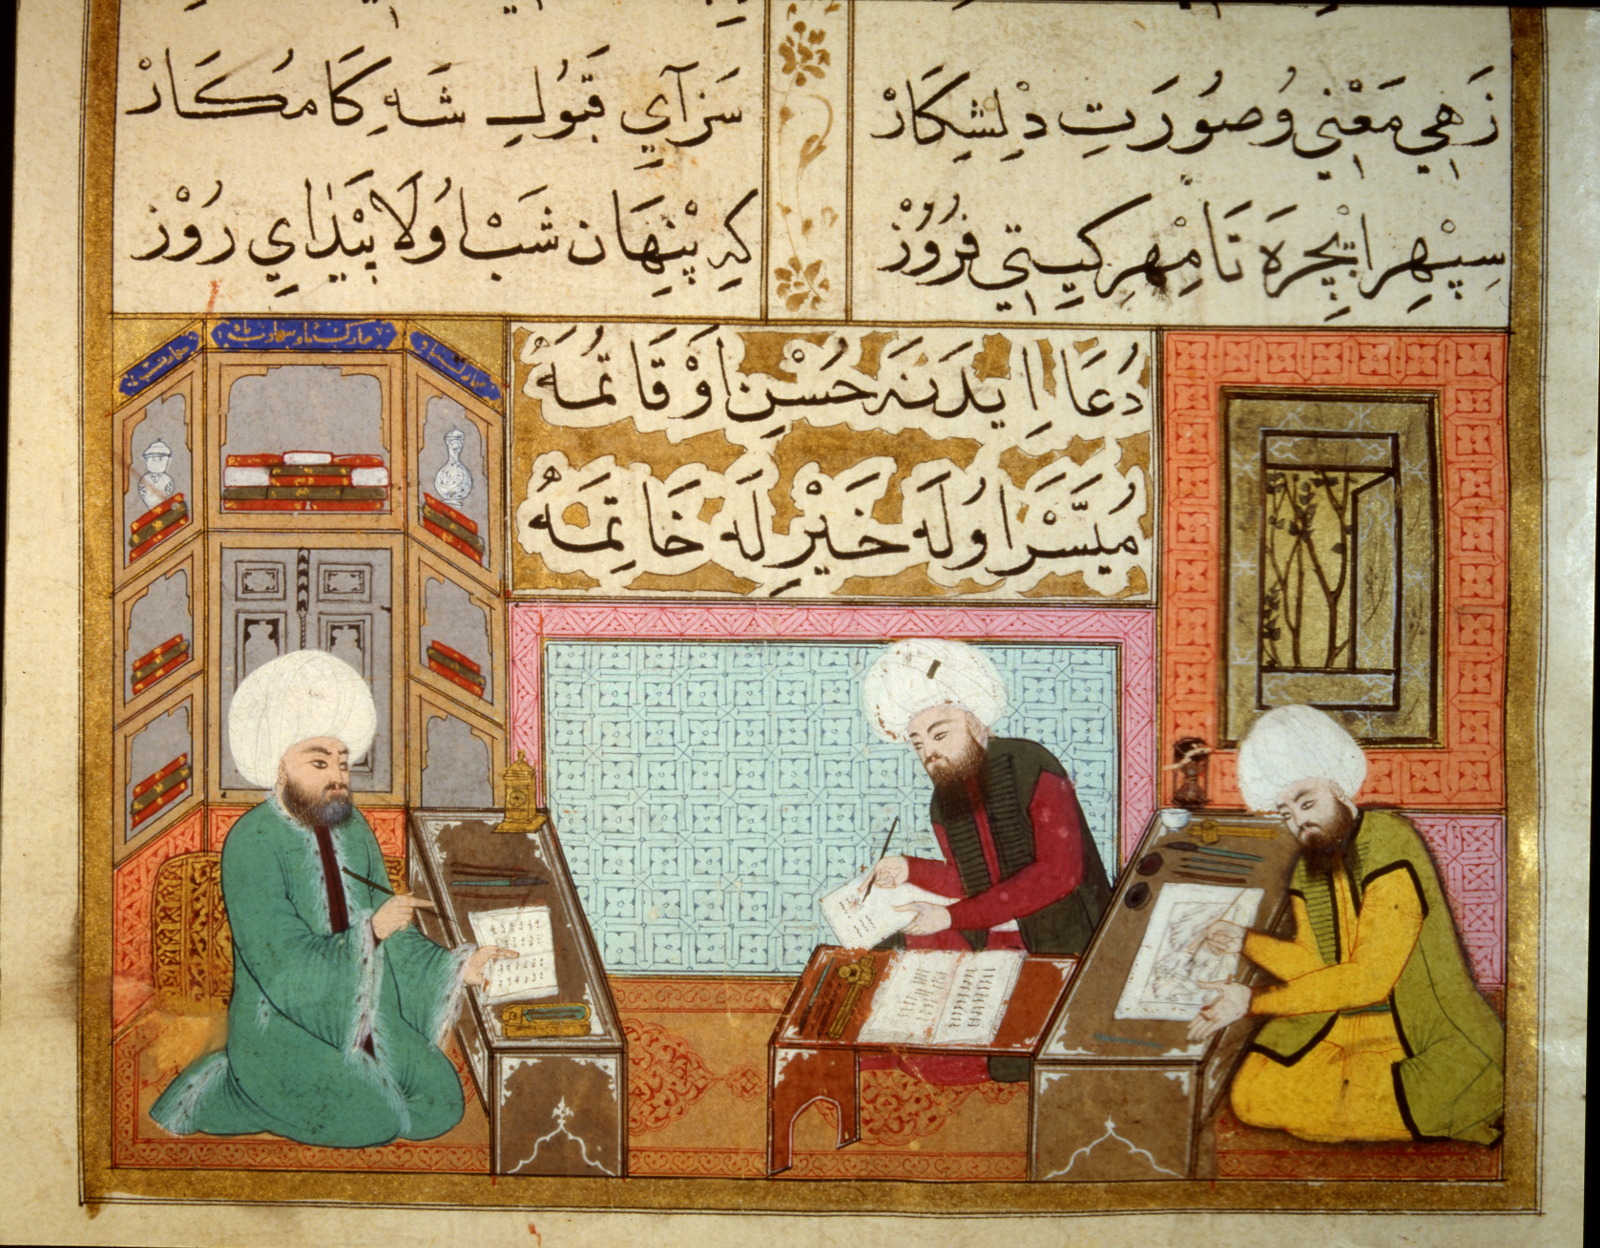 زَهِي مَعْنِي وُ صُورَتِ دِلْشِكَارْ سَزَآيِ قَبُولِ شَهِ كَامُكَارْ
سِپِهْرِ اِيچِرَه تَا مِهْرِ كِيتِي فُرُوزْ كِه پِنْهَان شَبْ اُولَا پَيْدَايِ رُوْز
دُعَا اِيدَنَه حُسْنِ اَوْقَاتُمَهْ
مُيَسَّرْ اُولَه خَيْرِلَه خَاتِمَهْ